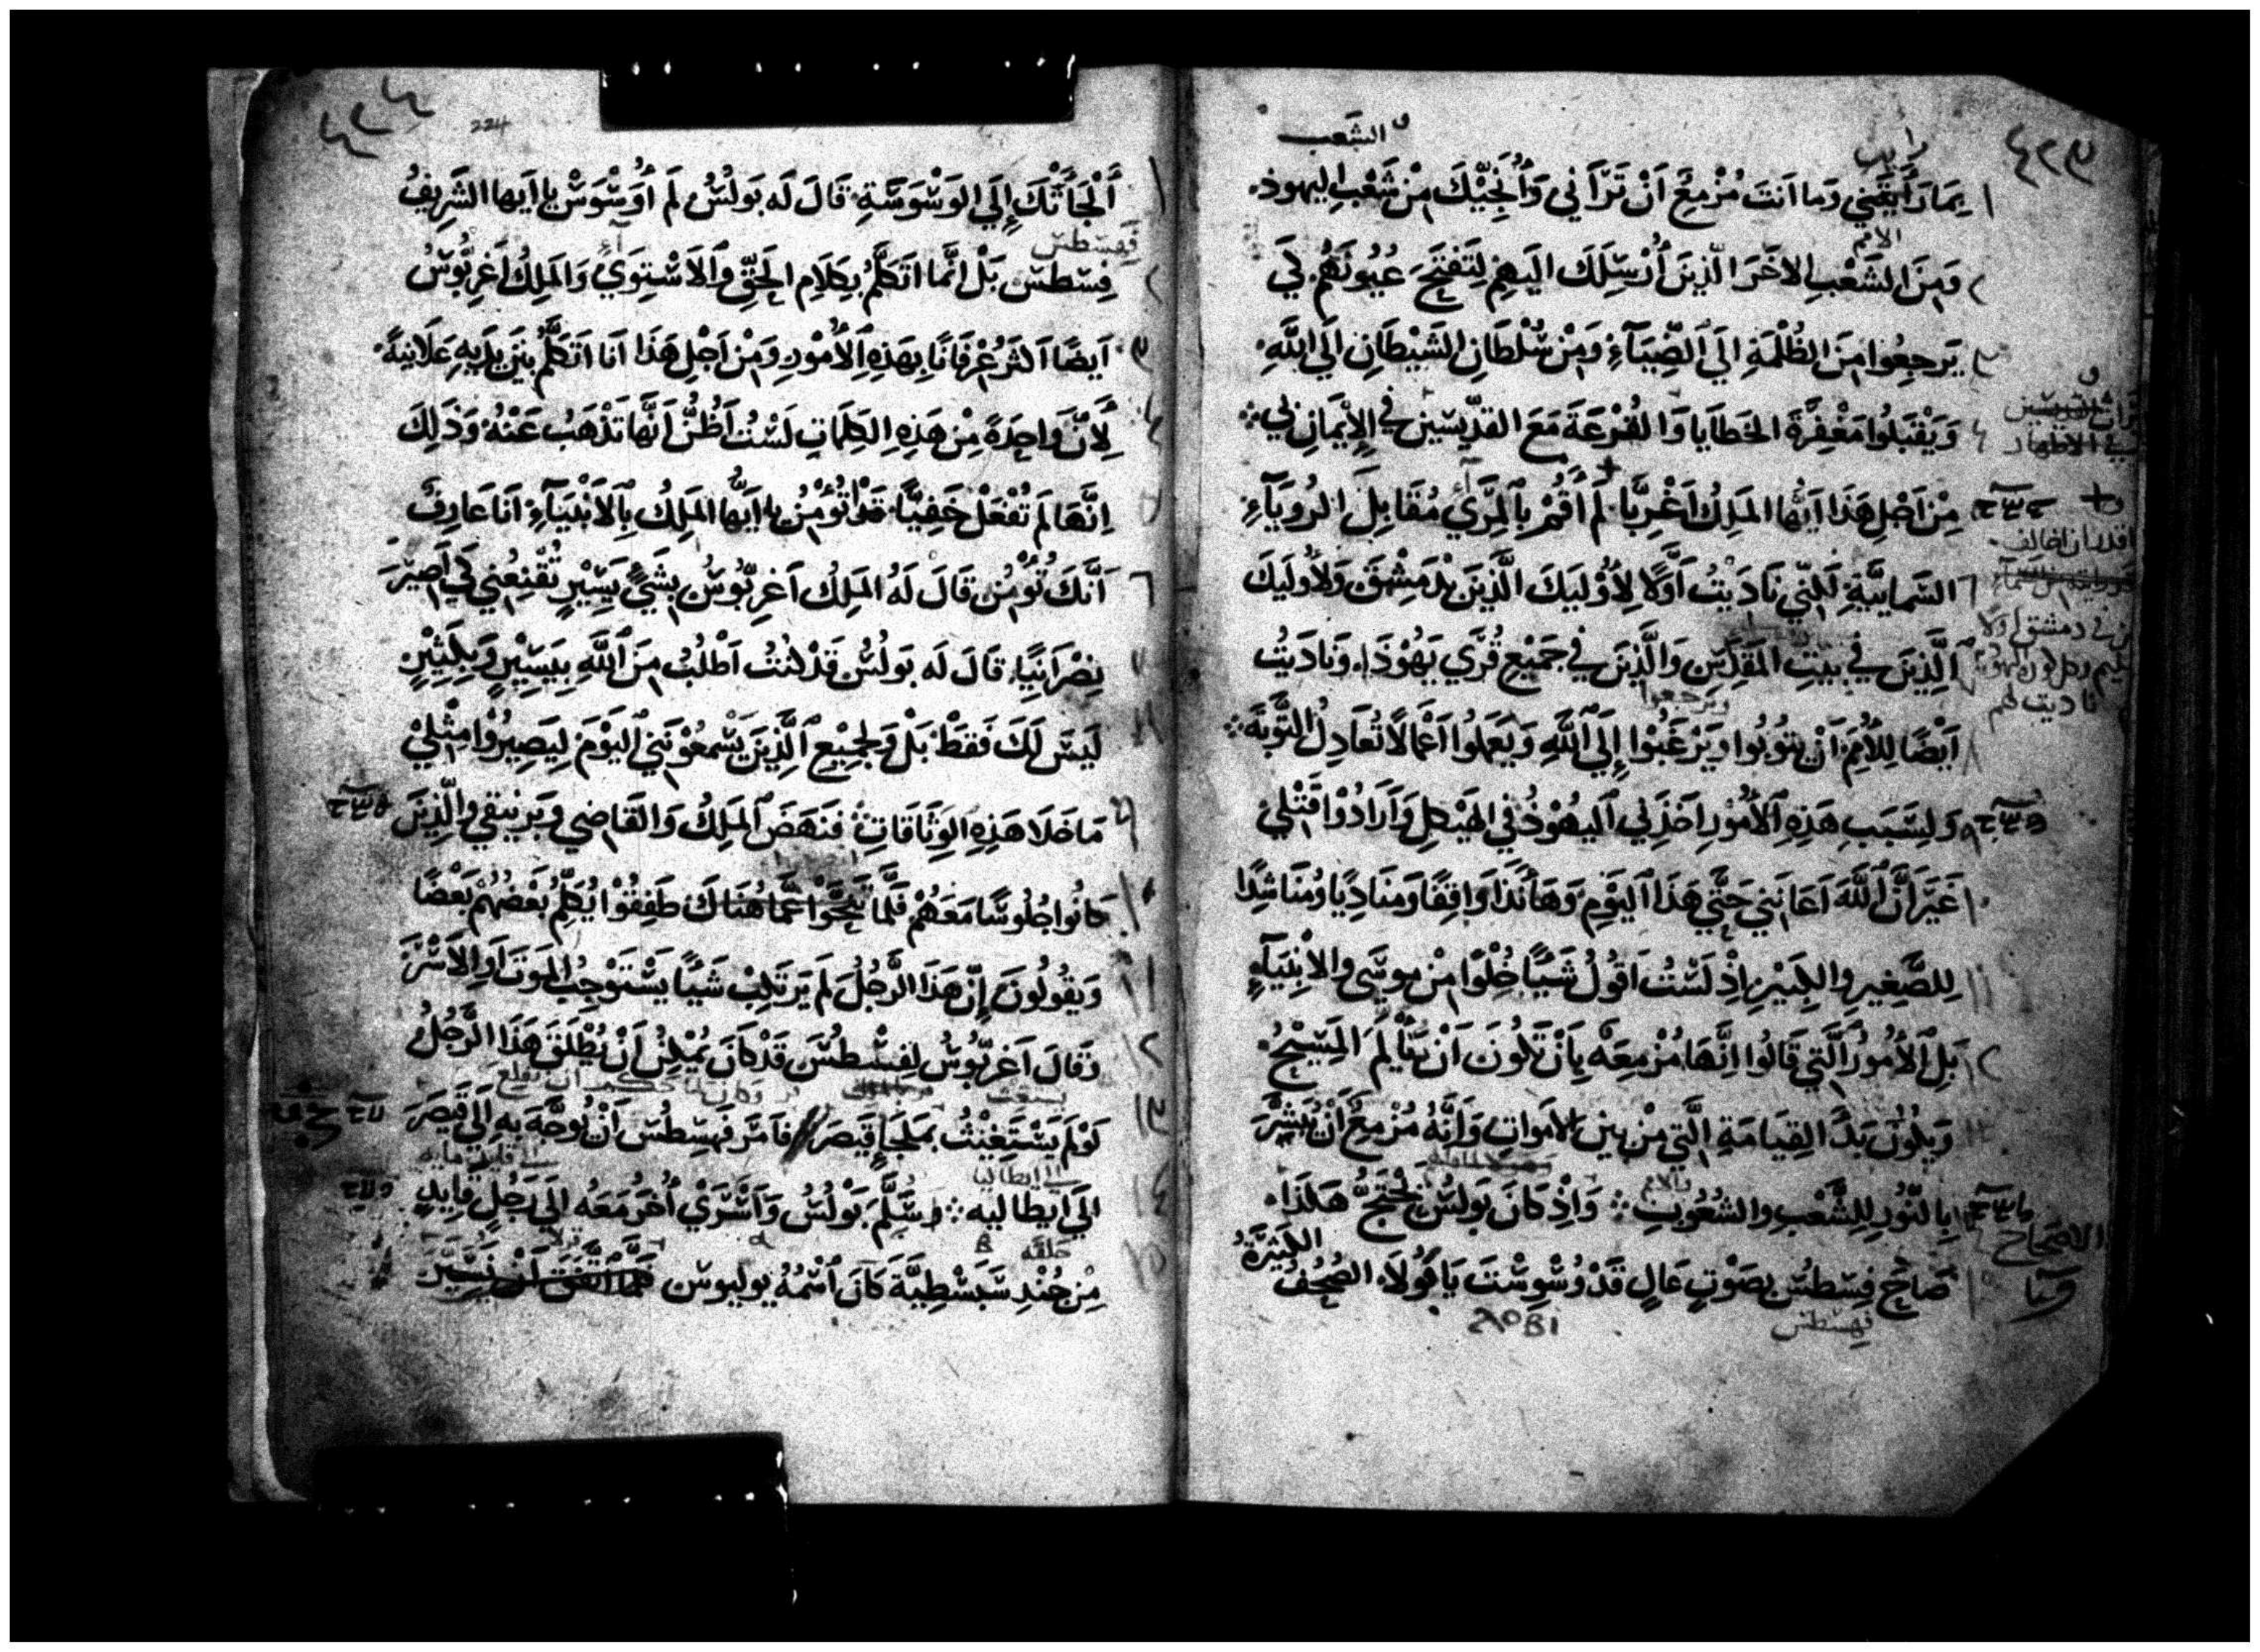 الشعب
١ بِمَا رَأَيتَني وَما اَنتَ مُزْمِعٌ اَنْ تَرَانِي وَأُنَجِّيْكَ مِنْ شَعْبِ اليهود
الامم
٢ وَمِنَ الشَعْبِ الاخَرَ الَّذِينَ أُرْسِلُكَ الَيهِم لِتَفتَحَ عُيُونَهُم لِكَي
٣ يَرجِعُوا مِنَ الظُلْمَةِ اِلَي الضِّيَآءِ وَمِنْ سُلْطَانِ الشَيطَانِ اِلَي اللَّهِ
٤ وَيَقْبَلُوا مَغْفِرَةَ الخَطَايا وَالقُرْعَةَ مَعَ القدِّيسين في الإيمَانِ بِي
٥ مِنْ اَجْلِ هَذَا اَيُّها المَلِكُ اَغْرِبَّا لم أَقُمْ بِالمِرَآءِ مُقَابِلَ الرُويَآءِ
٦ السَّمايَّيةِ لَكِنِّي نَادَيْتُ اَوَّلًا لِأُولَيكَ الَّذِينَ بِدِمَشِقَ وَلِأُولَيكَ
٧ اَلَّذِينَ في بَيتِ المَقدِسِ وَالَّذِينَ في جَمِيْعِ قُرَي يَهُوْذَا وَنَادَيْتُ
ويرجعوا
٨ اَيْضًا لِلأُمَمِ اَنْ يتُوبُوا وَيَرْغَبُوا إِلَي اللَّهِ وَيَعمَلُوا اَعْمَالًا تُعَادِلُ التَّوبَة
٩ وَلِسَبَبِ هَذِهِ الأُمُورِ اخَذَنِي اليهُوْذُ فِي الهَيْكلِ وَاَرَادُوْا قَتْلِي
١٠ غَيْرَ اَنَّ اللَّهَ اَعَانَنِي حَتَّي هَذَا اليَوْمِ وَهَأَنَذَا وَاقِفًا وَمنَادِيًا وَمُنَاشِدًا
١١ لِلصَّغِيرِ والكبَيْرِ اِذْ لَسْتُ اَقُولُ شَيًّا خِلْوًا مِنْ موسَى والانْبِيَآءِ
١٢ بَلِ الأُمُورُ الَّتي قَالُوا اِنَّهَا مُزْمِعَه بِاَنْ تَكُونَ اَنْ يَتَأَلَمَ المَسيْحُ
١٣ وَيَكُونُ بَدَأ القِيَامَةِ الَّتِي مِنْ بينِ الأمواتِ وَإِنَّهُ مُزْمِعٌ أَنْ يُبَشِّرَ
١٤ بِالنُّورِ لِلشَّعْبِ والشُعُوبِ وَاِذْ كَانَ بَولُسُ يَحْتَجُّ هَكَذَا
الاصحاح
الكَثِيْرَةُ
١٥ صَاحَ فِسْطُسُ بِصَوْتٍ عَالٍ قَدْ وُسْوِسْتَ يَا بَوُلَا الصُحُفُ
فهسطس
224
١ أَلْجَأَتْكَ إِلَي الوَسْوَسَةِ قَالَ لَه بَولُسُ لَم أُوَسْوَسْ يا اَيها الشَرِيفُ
فهسطس
٢ فِسْطسُ بَلْ اِنَّما اتَكَلَّمُ بِكَلَامِ الحَقِّ وَالاسْتِوَي وَالمَلِكُ اَغرِبُّوسُ
٣ اَيضًا اَكثَرُ عِرْفَانًا بِهَذِهِ الأُمُورِ وَمِنْ اَجْلِ هَذَا اَنَا اتَكَلَّمُ بَيْنَ يَدَيهِ عَلَانِيَةً
٤ لِأَنَّ وَاحِدَةً مِنْ هَذِهِ الكَلِمَاتِ لَسْتُ اَظُنُّ اَنَّها تَذْهَبُ عَنْهُ وَذَلِكَ
٥ اِنَّهَا لَم تُفْعَلْ خَفِيًّا قَدْ تُؤمِنُ يا اَيُّها المَلِكُ بِالاَنْبِيَآءِ اَنا عَارِفٌ
٦ اَنَّكَ تُؤمِنُ قَالَ لَهُ المَلِكُ اَغرِبُّوسُ بِشَيْءٍ يَسِيْرٍ تُقْنِعُنِي كي اَصِيْرَ
٧ نصْرَانِيًا قَالَ لَه بَولُسُ قَدْ كنتُ اَطْلُبُ مِنَ اللَّهِ بِيَسِيْرٍ وَبكَثِيْرٍ
٨ لَيسَ لَكَ فَقَطْ بَلْ وَلِجَمِيْعِ الَّذِينَ يَسْمعُوْنَنِي اليَوْمَ لِيَصِيرُوْا مِثْلِي
٩ مَا خَلَا هَذِهِ الوِثَاقَاتِ فَنَهَضَ المَلِكُ وَالقَاضِي وَبَرنِيقي والَّذِينَ
١٠ كانُوا جُلُوسًا مَعَهُمْ فَلَمَّا تَنَحَّوْا عَمَّا هُنَاكَ طَفِقُوْا يُكَلِّمُ بَعْضُهُمْ بَعْضًا
١١ وَيقُولُونَ إِنَّ هَذَا الرَّجُلَ لَم يَرتَكِبْ شَيًّا يَسْتَوْجِبُ المَوتَ اَوِ الاَسْرَ
١٢ وَقَالَ اَغرِبُّوسُ لِفِسْطُسَ قَدْ كَانَ يُمْكِنُ اَنْ يُطْلَقَ هَذَا الرَّجُلُ
١٣ لَوْ لَم يَسْتَغِيْثُ بمَلجَإِ قَيصَرَ فَامَرَ فَهسِطُس اَنْ يُوَجَّهَ بِهِ اِلَي قَيصَرَ
ايطاليا
١٤ الي ايطاليه وَسَلَّمَ بَوْلُسُ وَاَسْرَيْ اُخَرُ مَعَهُ الي رَجُلٍ قايدٍ
١٥ مِن جُنْدِ سَبَسْطِيَّة كَانَ اسْمُهُ يوليوس